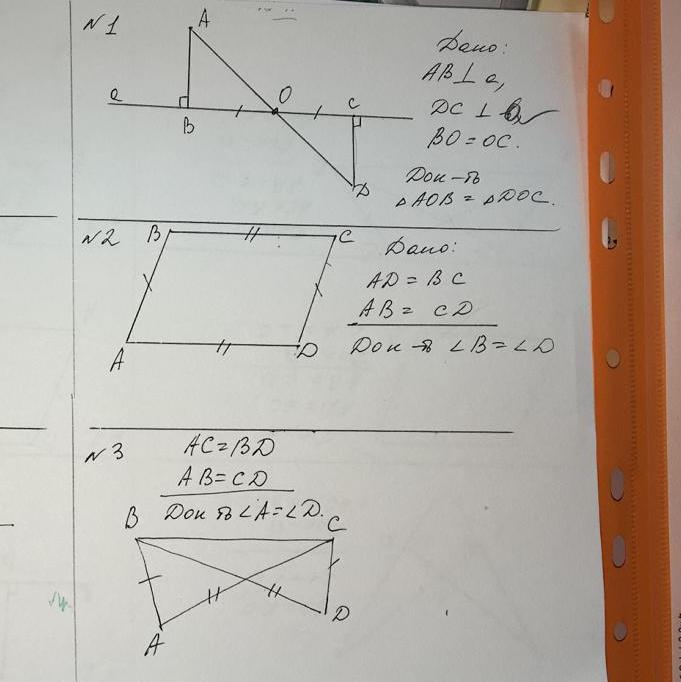 N1
A
a
B
O
C
D
Дано:
AB ⊥ a,
DC ⊥
BO = OC.
Док-ть
△AOB = △DOC.
N2
B
C
A
D
Дано:
AD = BC
AB = CD
Док-ть ∠B = ∠D
N3
AC = BD
AB = CD
Док-ть ∠A = ∠D.
B
C
A
D